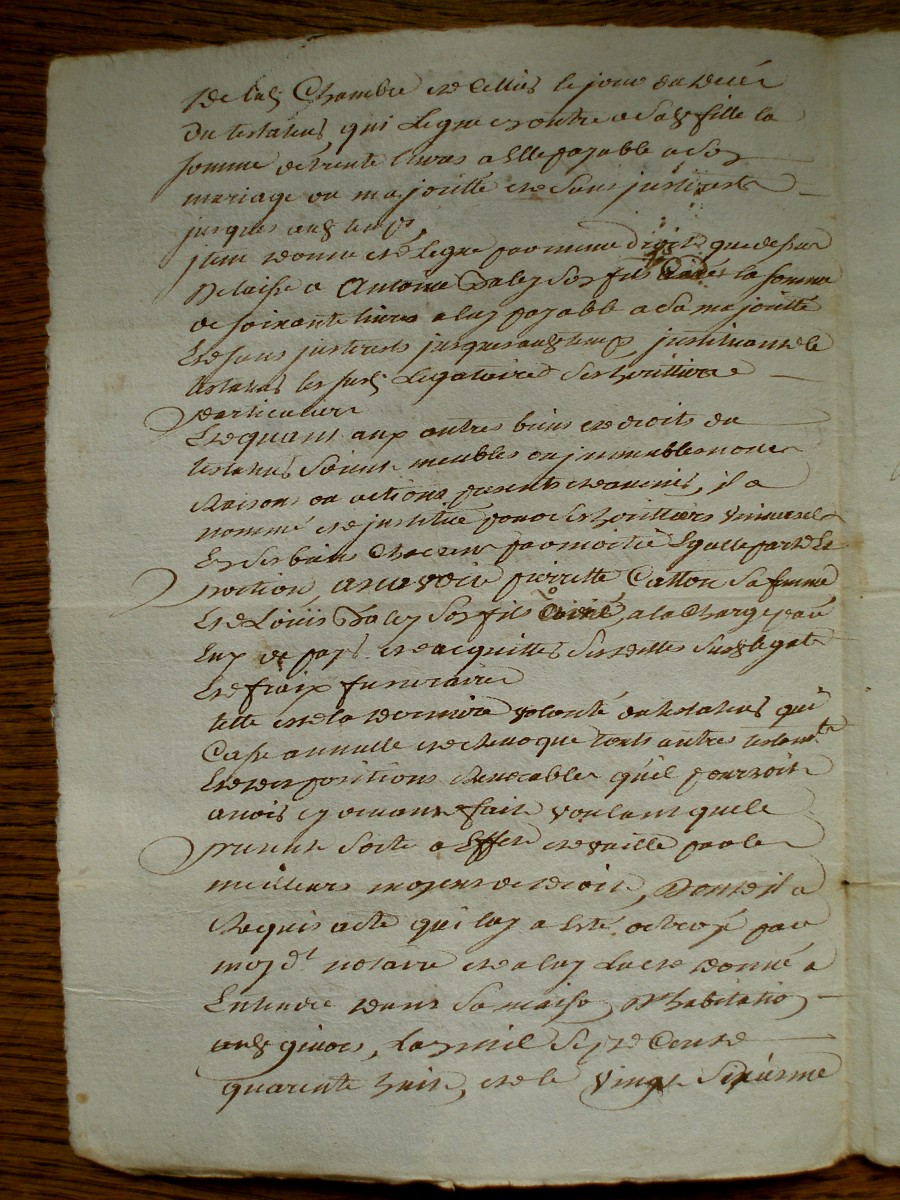 de lad. Chambre et celliers le jour du decés
du testateur, qui legue en outre a sad. fille la
somme de trente livres a Elle payable a son
mariage ou majoritté et sans jnterest
jusques aud. temps,
jtem donne et legue par meme droit que dessus
Delaisse a Antoine Daley son fils la somme
de soixante livres a luy payable a sa majoritté
Et sans jnterest jusques aud. temps jnstituant le
testateur les susd. legataires ses herittiers
particuliers
Et quant aux autres biens et droits du
testateur soient meubles ou jmmeubles noms
raisons ou actions presents et avenir, il a
nommé et jnstitue pour ses herittiers universels
En ses biens chacun par moitié Egalle part et
portion, a scavoir pierrette Catton sa femme
Et Louis Daley son fils, a la charge par
Eux de payer et acquitter ses dettes susd. legats
Et fraix funeraires
telle est la derniere volonté du testateur qui
Casse annulle et revoque touts autres testamts
Et dispositions revocables qu'il pourroit
avoir cy devant fait voulant que le
present sorte a Effet et vaille par les
meilleurs moyens de droit, Dont il a
Requis acte qui luy a esté octroyé par
moy dt notaire et a luy leu et donné a
Entendre dans sa maison d'habitation
aud. givors, L'an mil sept Cent
quarente huit, et le vingt sixieme